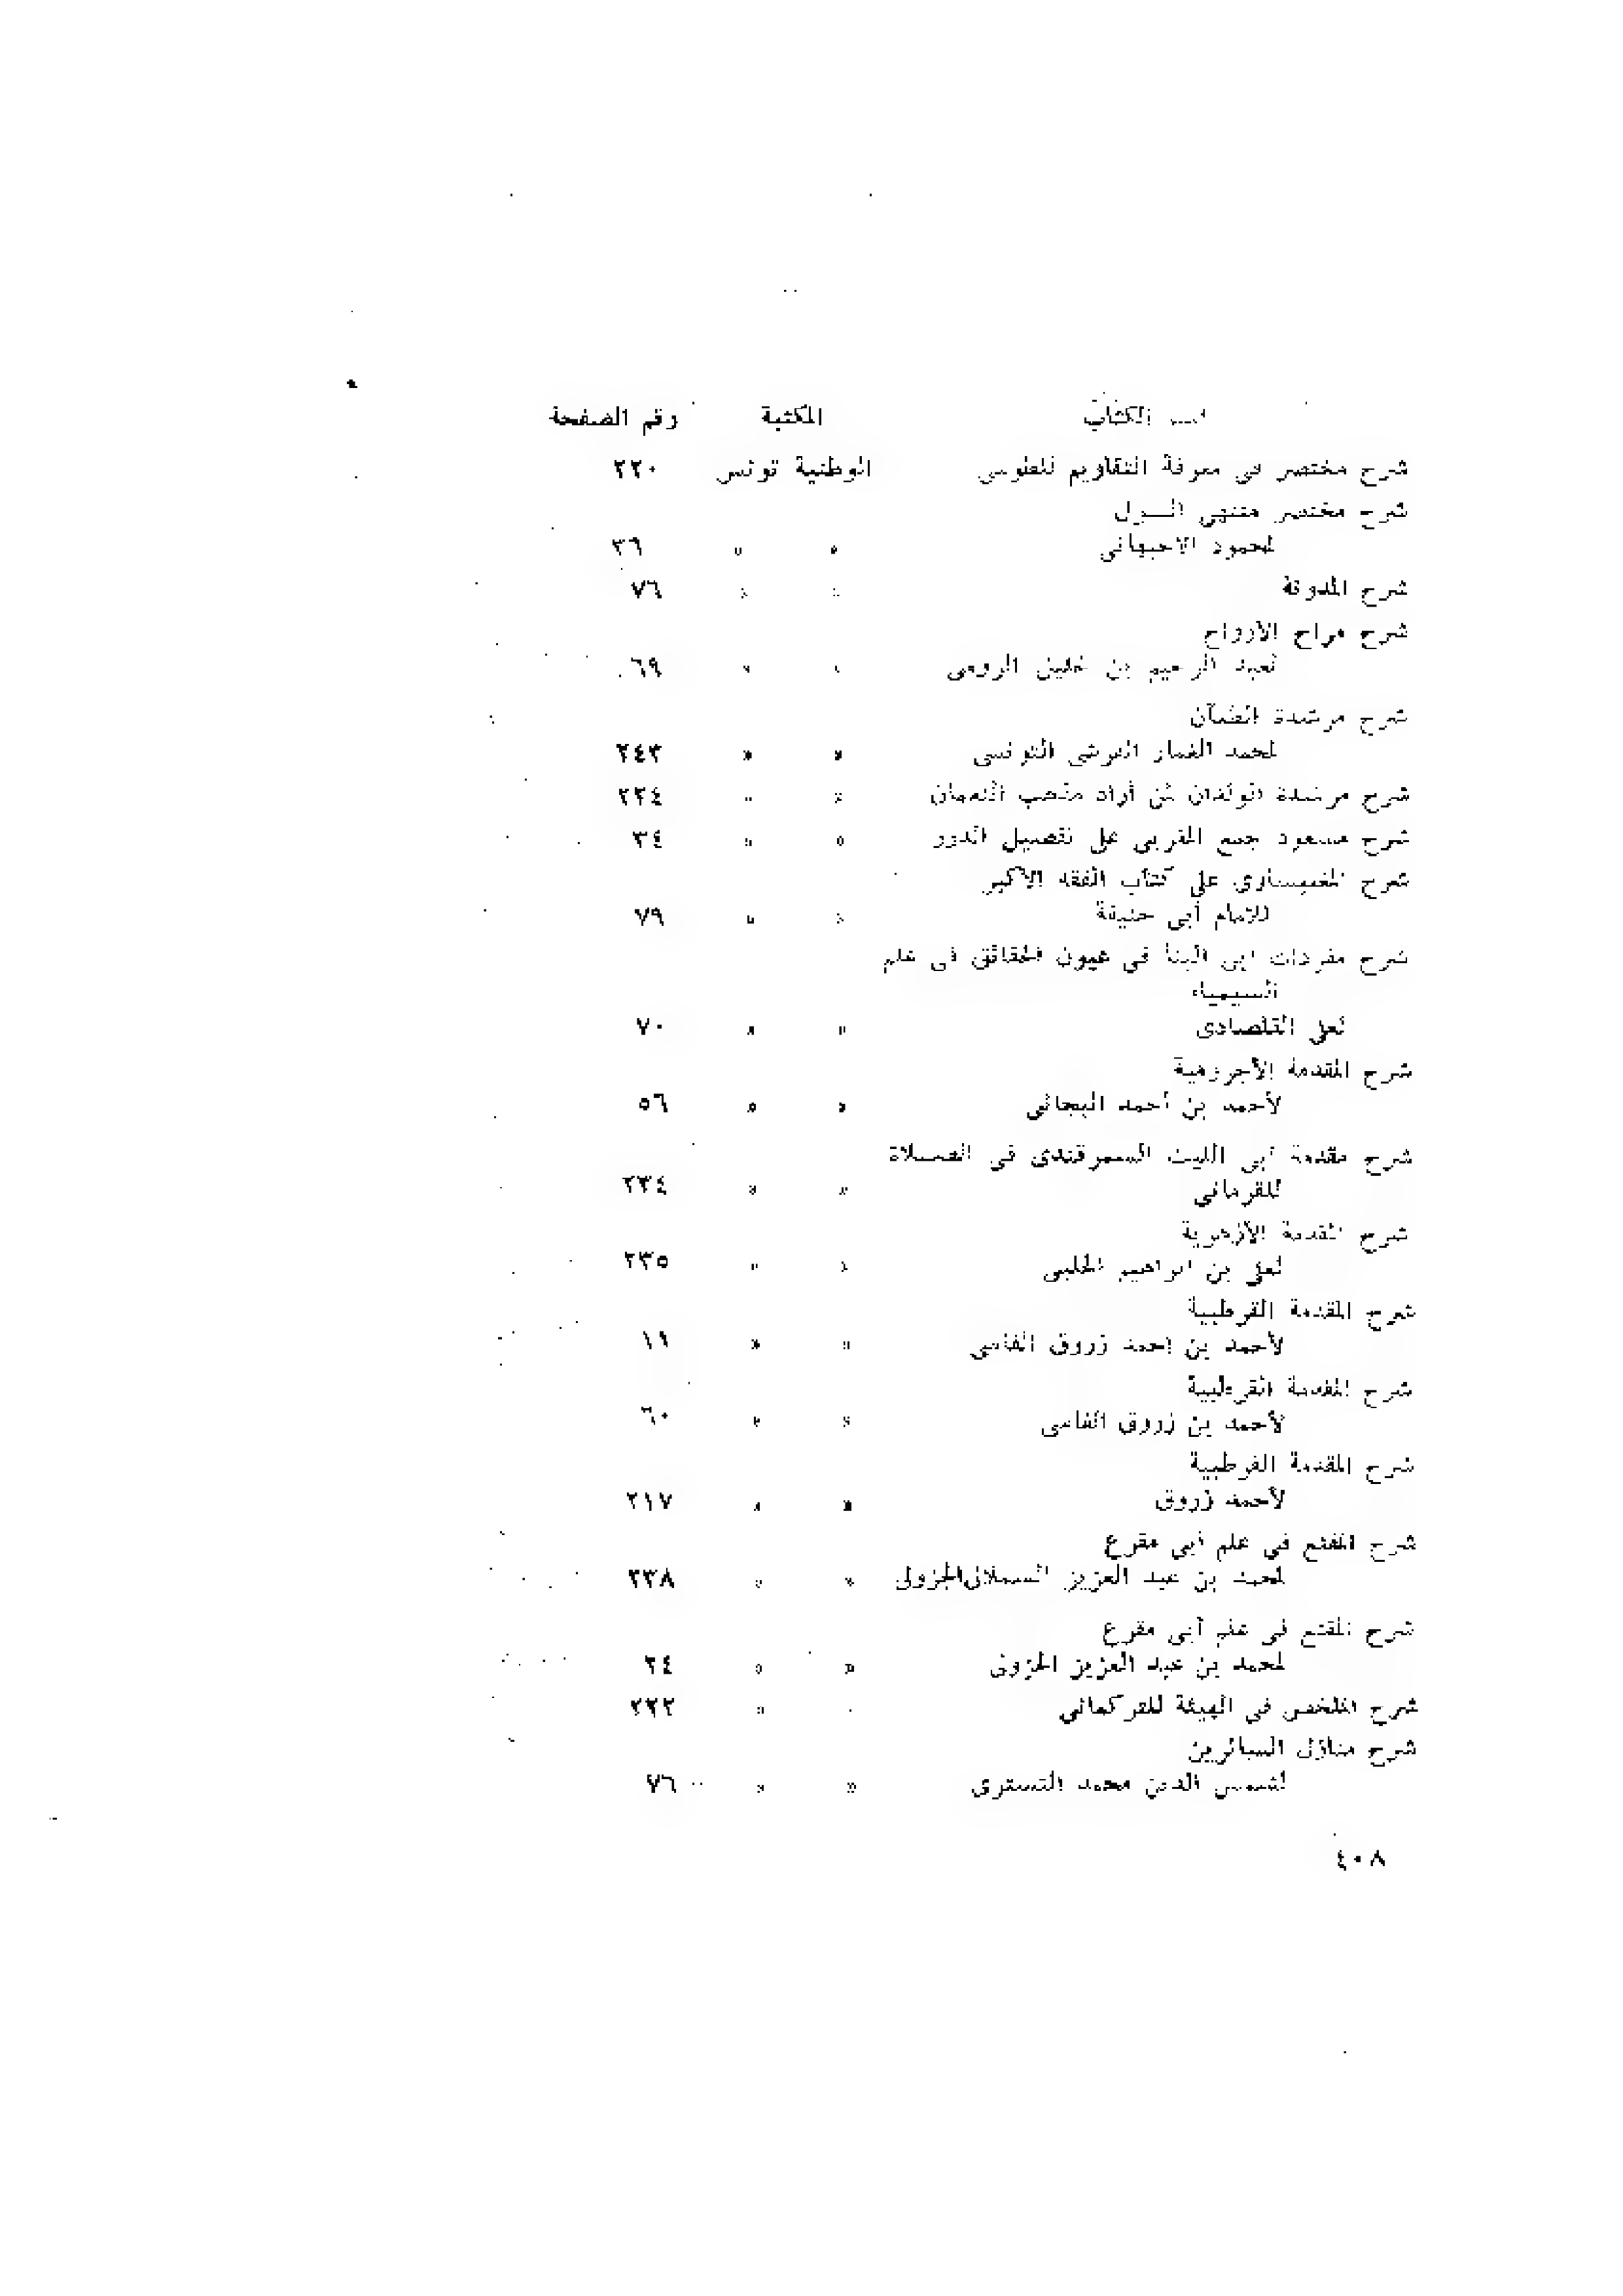 اسم الكتاب المكتبة رقم الصفحة
شرح مختصر فى معرفة التقاويم للطوسى الوطنية تونس ٢٢٠
شرح مختصر منتهى السول
لمحمود الاصبهانى » » ٣٦
شرح المدونة » » ٧٦
شرح مراح الارواح
لعبد الرحيم بن خليل الرومى » » ٦٩
شرح مرشدة الظمآن
لمحمد الغماز القرشى التونسى » » ٢٤٣
شرح مرشدة الولدان لمن أراد مذهب النعمان » » ٢٢٤
شرح مسعود جمع المغربى على تفصيل الدرر » » ٣٤
شرح المغنيساوى على كتاب الفقه الأكبر
للامام أبى حنيفة » » ٧٩
شرح مفردات ابى البنا فى عيون الحقائق فى علم
السيمياء
لعلى القلصادى » » ٧٠
شرح المقدمة الأجرومية
لأحمد بن أحمد البجائى » » ٥٦
شرح مقدمة أبى الليث السمرقندى فى الصلاة
للقرمانى » » ٢٣٤
شرح المقدمة الأزهرية
لعلى بن ابراهيم الحلبى » » ٢٣٥
شرح المقدمة القرطبية
لأحمد بن احمد زروق الفاسى » » ١٩
شرح المقدمة القرطبية
لأحمد بن زروق الفاسى » » ٦٠
شرح المقدمة القرطبية
لأحمد زروق » » ٢١٧
شرح المقنع فى علم أبى مقرع
لمحمد بن عبد العزيز السملالى الجزولى » » ٢٣٨
شرح المقنع فى علم أبى مقرع
لمحمد بن عبد العزيز الجزولى » » ٢٤
شرح الملخص فى الهيئة للتركمانى » » ٢٢٢
شرح منازل السائرين
لشمس الدين محمد التسترى » » ٧٦
٤٠٨